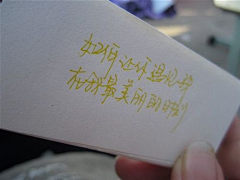 如何让你遇见我
在我最美丽的时刻